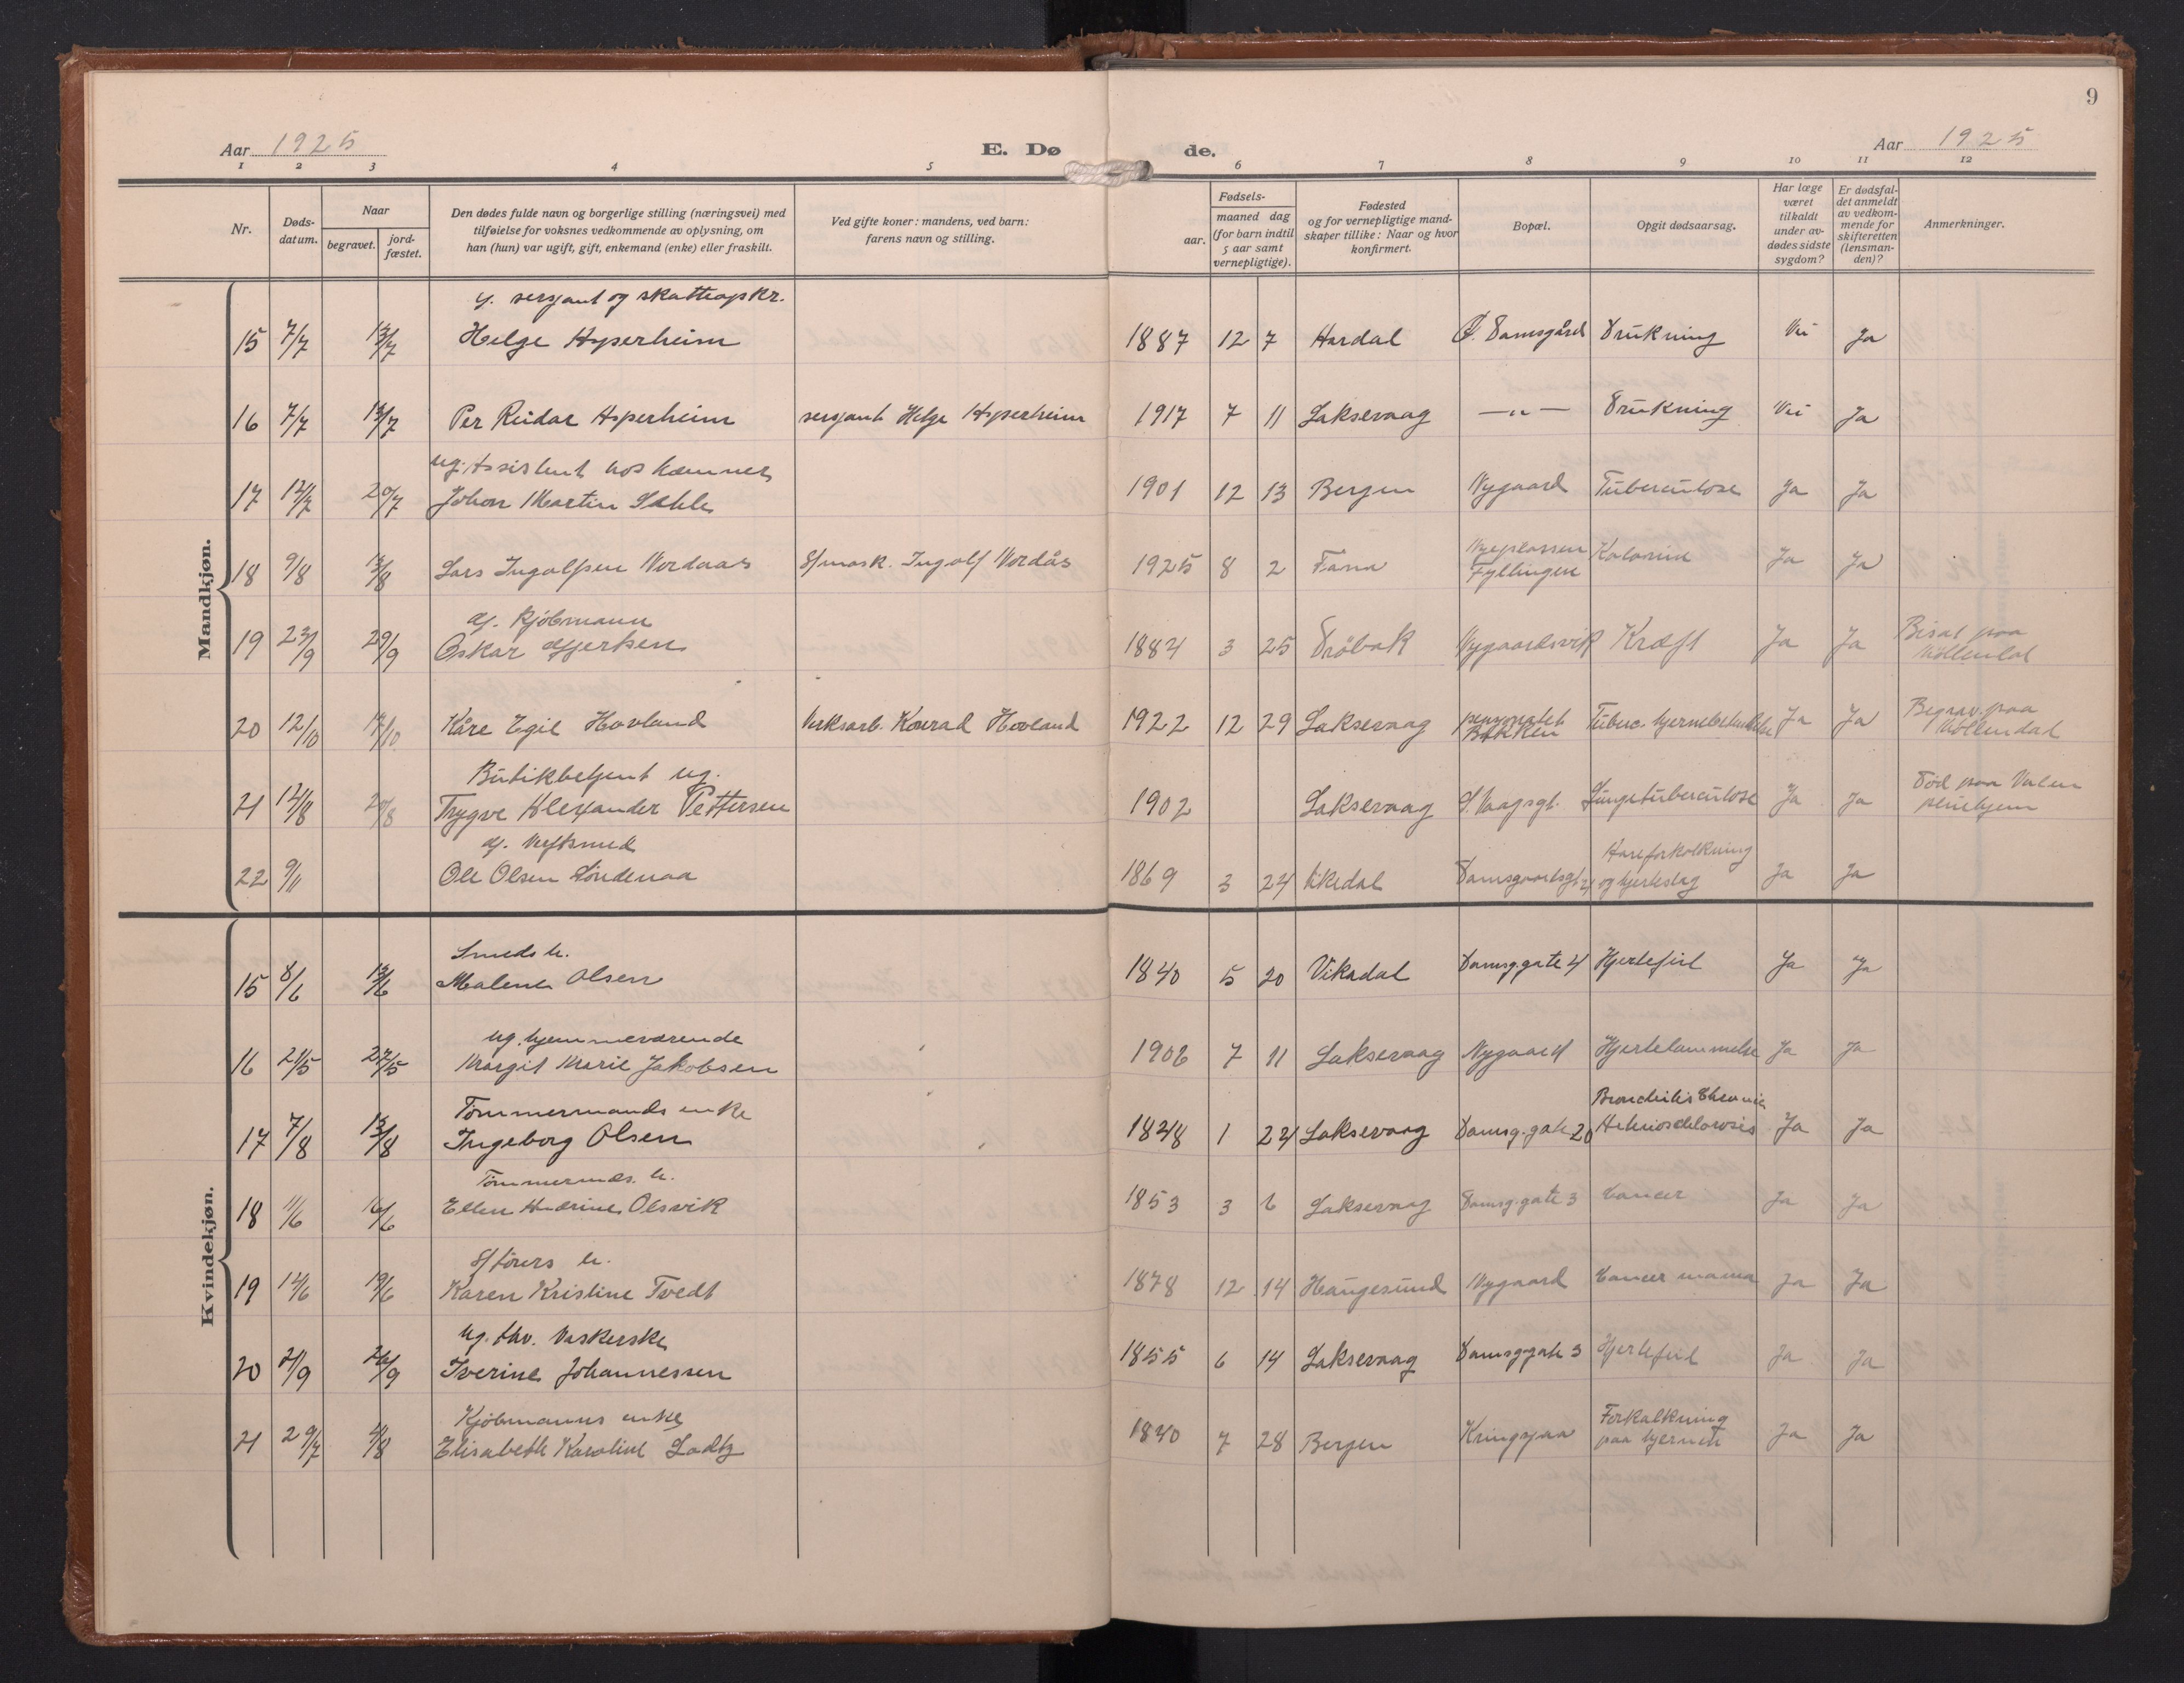 9
Aar 1925 E. Dø de. Aar 1925
1 2 3 4 5 6 7 8 9 10 11 12
Nr.
Døds-
datum.
Naar
begravet.
jord-
fæstet.
Den dødes fulde navn og borgerlige stilling (næringsvei) med
tilføielse for voksnes vedkommende av oplysning, om
han (hun) var ugift, gift, enkemand (enke) eller fraskilt.
Ved gifte koner: mandens, ved barn:
farens navn og stilling.
aar.
Fødsels-
maaned dag
(for barn indtil
5 aar samt
vernepligtige).
Fødested
og for vernepligtige mand-
skaper tillike: Naar og hvor
konfirmert.
Bopæl.
Opgit dødsaarsag.
Har læge
været
tilkaldt
under av-
dødes sidste
sygdom?
Er dødsfal-
det anmeldt
av vedkom-
mende for
skifteretten
(lensman-
den)?
Anmerkninger.
Mandkjøn.
g. sersjant og skatteopskr.
15 7/7 13/7 Helge Asperheim 1887 12 7 Aardal Ø. Damsgård Drukning Nei Ja
16 7/7 13/7 Per Reidar Asperheim sersjant Helge Asperheim 1917 7 11 Laksevaag —"— Drukning Nei Ja
ug. Assistent hos kæmner
17 20/7 Johan Martin Dahle 1901 12 13 Bergen Nygaard Tuberculose Ja Ja
18 9/8 13/8 Lars Ingolfsen Nordaas S/mask. Ingolf Nordås 1925 8 2 Fana Fyllingen Ja Ja
g. Kjøbmann
19 29/9 Oskar Gjertsen 1884 3 25 Drøbak Nygaardsvik Kræft Ja Ja Bisat paa
Møllendal
20 12/10 17/10 Kåre Egil Hovland Verksarb. Konrad Hovland 1922 12 29 Laksevaag Bakken Tuberc. hjernebetendelse Ja Ja Begrav. paa
Møllendal
Butikbetjent ug.
21 20/8 Trygve Alexander Pettersen 1902 Laksevaag S. Vaagsgt. Lungetuberculose Ja Ja Død paa Valen
pleiehjem
g. Verftsmed
22 9/11 Ole Olsen Søndenaa 1869 3 24 Vikedal Damsgaardsgt 4 Aareforkalkning
og hjerteslag Ja Ja
Kvindekjøn.
Smeds e.
15 8/6 13/6 Malene Olsen 1840 5 20 Vikedal Damsg.gate 4 Hjertefeil Ja Ja
ug. hjemmeværende
16 21/5 27/5 Margit Marie Jakobsen 1906 7 11 Laksevaag Nygaard Hjertelammelse Ja Ja
Tømmermands enke
17 7/8 13/8 Ingeborg Olsen 1848 1 24 Laksevaag Damsg.gate 20 Bronchitis Chronic
Arteriosclerosis Ja Ja
Tømmermds. e.
18 11/6 16/6 Ellen Olsvik 1853 3 6 Laksevaag Damsg.gate 3 Cancer Ja Ja
S/førers e.
19 19/6 Karen Kristine Tvedt 1878 12 14 Haugesund Nygaard Cancer mama Ja Ja
ug. fhv. Vaskerske
20 21/9 26/9 Iverine Johannessen 1855 6 14 Laksevaag Damsg.gate 3 Hjertefeil Ja Ja
Kjøbmanns enke
21 29/7 4/8 Elisabeth Karoline Ladtz 1840 7 28 Bergen Kringsjaa Forkalkning
paa hjernen Ja Ja